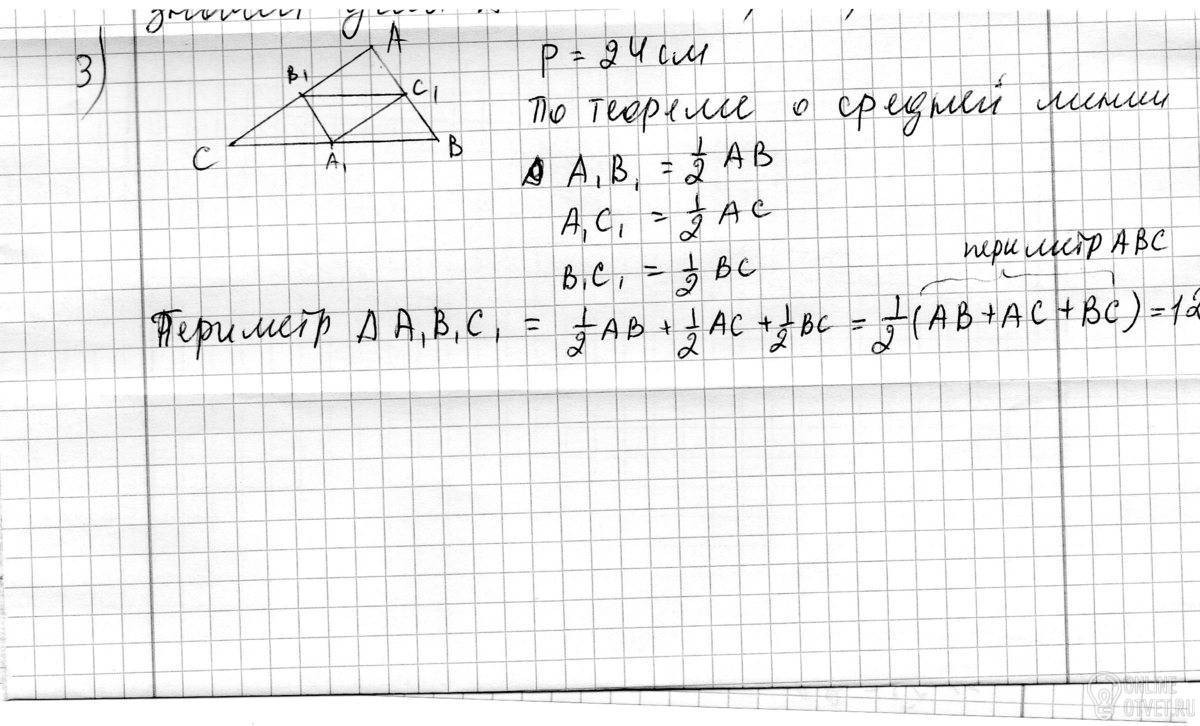 3)
A
B₁
C₁
C
A₁
B
P = 24 см
По теореме о средней линии
A₁B₁ = 1/2 AB
A₁C₁ = 1/2 AC
B₁C₁ = 1/2 BC
периметр ABC
Периметр Δ A₁B₁C₁ = 1/2 AB + 1/2 AC + 1/2 BC = 1/2 (AB + AC + BC) = 12
ONLINE
OTVET.RU